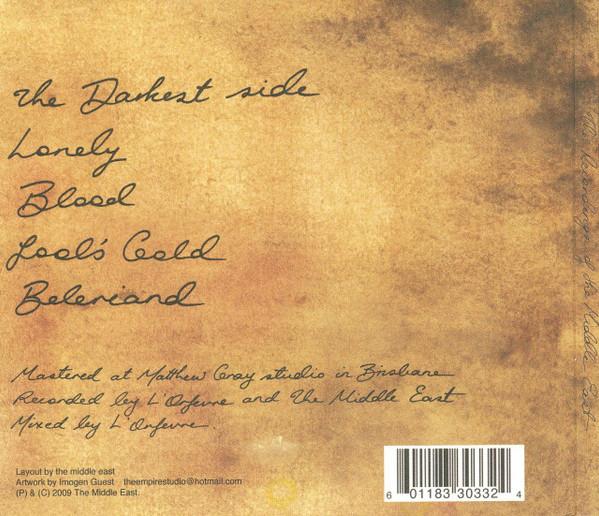 The Darkest side
Lonely
Blood
Fool's Gold
Beleriand
Mastered at Matthew Gray studio in Brisbane
Recorded by L'Orfevre and The Middle East
Mixed by L'Orfevre.
Layout by the middle east
Artwork by Imogen Guest theempirestudio@hotmail.com
(P) & (C) 2009 The Middle East.
6 01183 30332 4
The Recordings of the Middle East